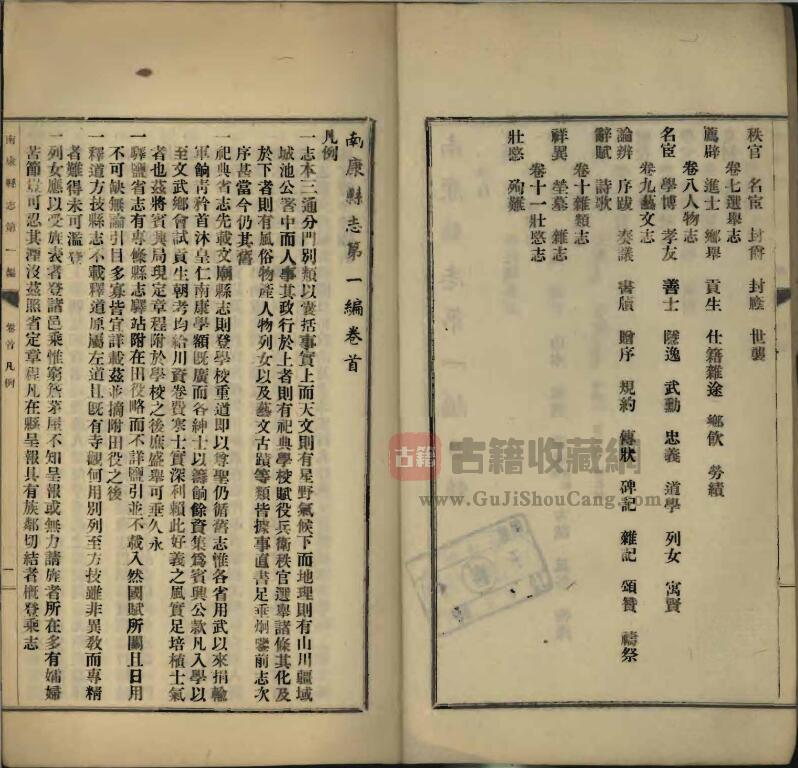 秩官 名宦 封爵 封廕 世襲
卷七選舉志
薦辟 進士 鄉舉 貢生 仕籍雜途 鄉飲 勞績
卷八人物志
名宦 學博 孝友 善士 隱逸 武勳 忠義 道學 列女 寓賢
卷九藝文志
論辨 序跋 奏議 書牘 贈序 規約 傳狀 碑記 雜記 頌贊 禱祭
辭賦 詩歌
卷十雜類志
祥異 塋墓 雜志
卷十一壯愍志
壯愍 殉難
南康縣志第一編卷首
凡例
一志本三通分門別類以囊括事實上而天文則有星野氣候下而地理則有山川疆域
城池公署中而人事其政行於上者則有祀典學校賦役兵衛秩官選舉諸條其化及
於下者則有風俗物產人物列女以及藝文古蹟等類皆據事直書足垂烱鑒前志次
序甚當今仍其舊
一祀典省志先載文廟縣志則登學校重道即以尊聖仍循舊志惟各省用武以來捐輸
軍餉青衿首沐皇仁南康學額既廣而各紳士以籌餉餘資集為賓興公款凡入學以
至文武鄉會試貢生朝考均給川資卷費寒士實深利賴此好義之風實足培植士氣
者也茲將賓興局現定章程附於學校之後庶盛舉可垂久永
一驛鹽省志有專條縣志驛站附在田役略而不詳鹽引並不載入然國賦所關且日用
不可缺無論引目多寡皆宜詳載茲並摘附田役之後
一釋道方技縣志不載釋道原屬左道且既有寺觀何用別列至方技雖非異教而專精
者難得未可濫登
一列女應以受旌表者登諸邑乘惟窮簷茅屋不知呈報或無力請旌者所在多有孀婦
苦節豈可忍其湮沒茲照省定章程凡在縣呈報具有族鄰切結者概登乘志
南康縣志第一編
卷首 凡例
一
古籍 古籍收藏網
www.GuJiShouCang.com